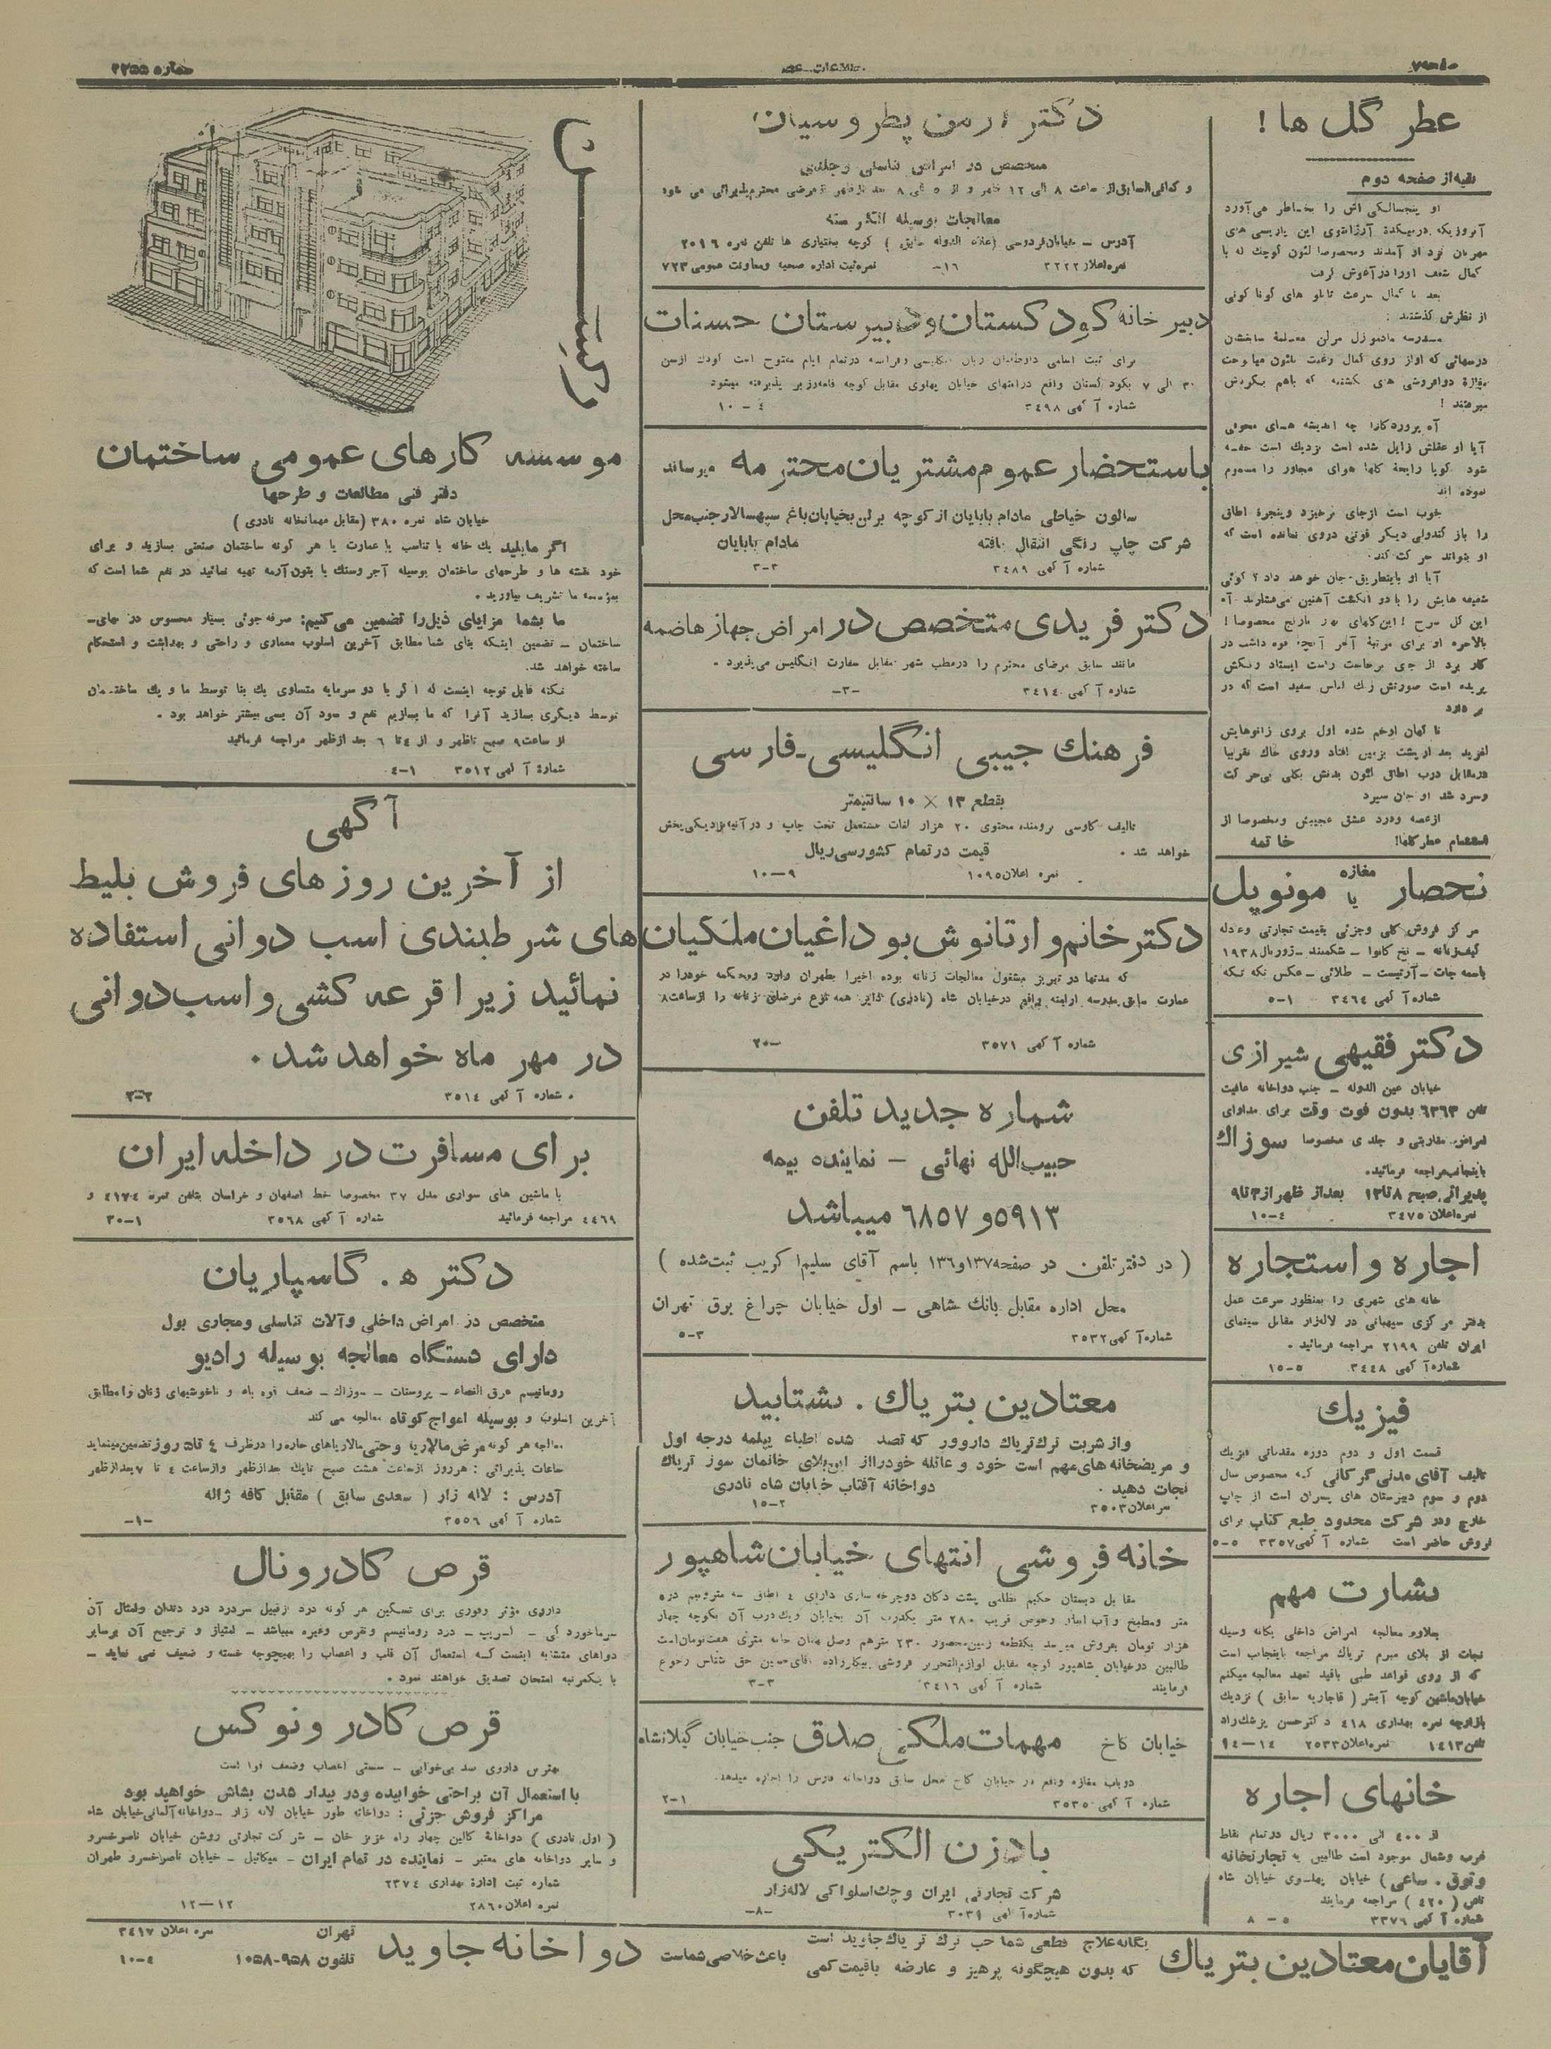 صفحه ۷
اطلاعات عصر
شماره ۳۳۵۵
عطر گل ها !
بقیه از صفحه دوم
او پنجسالگی اش را بخاطر می‌آورد
کمال شعف اورا در آغوش گرفت
بعد با کمال سرعت تابلو های گوناگونی
از نظرش گذشتند :
مدرسه مادموازل مرلن معلمهٔ سابقشان
میرفتند !
آیا او عقلش زایل شده است نزدیک است خفه
شود گویا رایحهٔ گلها هوای مجاور را مسموم
نموده اند
خوب است ازجای برخیزد و پنجرهٔ اطاق
را باز کند ولی دیگر قوتی در وی نمانده است که
او بتواند حرکت کند.
آیا او باینطریق جان خواهد داد ؟ گوئی
شقیقه هایش را با دو انگشت آهنین می‌فشارند آه
کار برد از جای برخاست راست ایستاد رنگش
پریده است صورتش رنگ الماس سفید است که در
بر دارد
ناگهان او خم شده اول بروی زانوهایش
لغزید بعد از پشت بزمین افتاد و روی خاک تقریبا
در مقابل درب اطاق لئون بدنش بکلی بی حرکت
و سرد شد او جان سپرد
از غصه و درد عشق عجیبش و مخصوصا از
استشمام عطر گلها! خاتمه
انحصار یا مغازه مونوپل
مرکز فروش کلی و جزئی بقیمت تجارتی و عادله
باسمه جات - آرتیست - طلائی - عکس تکه تکه
شماره آگهی ۳۴۶۴ ۱-۵
دکتر فقیهی شیرازی
خیابان عین الدوله - جنب دواخانه عافیت
تلفن ۶۳۶۳ بدون فوت وقت برای مداوای
امراض مقاربتی و جلدی مخصوصا سوزاک
باینجانب مراجعه فرمائید.
پذیرائی صبح ۸ تا ۱۲ بعد از ظهر از ۳ تا ۹
نمره اعلان ۳۴۷۵ ۴-۱۰
اجاره و استجاره
خانه های شهری را بمنظور سرعت عمل
بدفتر مرکزی سپهبانی در لاله‌زار مقابل سینمای
ایران تلفن ۲۱۹۹ مراجعه فرمائید .
شماره آگهی ۳۴۴۸ ۵-۱۵
فیزیک
قسمت اول و دوم دوره مقدماتی فیزیک
تالیف آقای مدنی گرکانی که مخصوص سال
دوم و سوم دبیرستان های پسران است از چاپ
خارج و در شرکت محدود طبع کتاب برای
فروش حاضر است شماره آگهی ۳۳۵۷ ۵-۵
بشارت مهم
بعلاوه معالجه امراض داخلی یگانه وسیله
نجات از بلای مبرم تریاک مراجعه باینجانب است
که از روی قواعد طبی باقید تعهد معالجه میکنم
خیابان ماشین کوچه آبشر ( قاجاریه سابق ) نزدیک
بازارچه نمره بهداری ۴۱۸ دکتر حسن پزشک راد
تلفن ۱۴۱۳ نمره اعلان ۲۵۳۳ ۱۴-۹۴
خانهای اجاره
از ۴۰۰ الی ۳۰۰۰ ریال در تمام نقاط
غرب و شمال موجود است طالبین به تجارتخانه
وثوق . ساعی ) خیابان پهلوی خیابان شاه
تلفن ( ۴۲۰ ) مراجعه فرمایند
شماره آگهی ۳۳۷۶ ۵- ۸
دکتر آرمن پطروسیان
متخصص در امراض تناسلی و جلدی
و کمافی السابق از ساعت ۸ الی ۱۲ ظهر و از ۵ الی ۸ بعد از ظهر از مرضی محترم پذیرائی می شود
معالجات بوسیله الکتریسته
آدرس - خیابان فردوسی (علاء الدوله سابق ) کوچه بختیاری ها تلفن نمره ۲۰۱۶
نمره اعلان ۳۲۲۲ ۱۶- نمره ثبت اداره صحیه و معاونت عمومی ۷۲۳
دبیر خانه کودکستان و دبیرستان حسنات
۳۰ الی ۷ بکودکستان واقع در انتهای خیابان پهلوی مقابل کوچه قلعه وزیر پذیرفته میشود
شماره آگهی ۳۴۹۸ ۴-۱۰
باستحضار عموم مشتریان محترمه میرساند
سالون خیاطی مادام بابایان از کوچه برلن بخیابان باغ سپهسالار جنب محل
شرکت چاپ رنگی انتقال یافته مادام بابایان
شماره آگهی ۳۴۸۹ ۳-۳
دکتر فریدی متخصص در امراض جهاز هاضمه
مانند سابق مرضای محترم را در مطب شهر مقابل سفارت انگلیس می‌پذیرد .
شماره آگهی ۳۴۱۴ -۳-
فرهنک جیبی انگلیسی-فارسی
بقطع ۱۳ × ۱۰ سانتیمتر
تالیف کاوسی برومنده محتوی ۲۰ هزار لغات مستعمل تحت چاپ و در آتیه نزدیکی پخش
خواهد شد . قیمت در تمام کشور سی ریال
نمره اعلان ۱۰۹۵ ۹-۱۰
دکتر خانم وارتانوش بوداغیان ملکیان
که مدتها در تبریز مشغول معالجات زنانه بوده اخیرا بطهران وارد و محکمه خودرا در
عمارت سابق مدرسه ارامنه واقع در خیابان شاه (نادری) دایر همه نوع مرضای زنانه را از ساعت ۸
شماره آگهی ۳۵۷۱ ۲۰-
شماره جدید تلفن
حبیب‌الله نهائی - نماینده بیمه
۵۹۱۳ و ۶۸۵۷ میباشد
( در دفتر تلفن در صفحه ۱۳۷ و ۱۳۶ باسم آقای سلیم اکریب ثبت شده )
محل اداره مقابل بانک شاهی - اول خیابان چراغ برق تهران
شماره آگهی ۳۵۳۲ ۳-۵
معتادین بتریاک . بشتابید
و از شربت ترک تریاک داروور که تصدیق شده اطباء دیپلمه درجه اول
و مریضخانه های مهم است خود و عائله خودرا از این بلای خانمان سوز تریاک
نجات دهید . دواخانه آفتاب خیابان شاه نادری
نمره اعلان ۳۵۰۳ ۲-۱۵
خانه فروشی انتهای خیابان شاهپور
هزار تومان بفروش میرسد یکقطعه زمین محصور ۲۳۰ متر هم وصل بهمان خانه متری هفت تومان است
فرمایند شماره آگهی ۳۴۱۶ ۳-۳
خیابان کاخ مهمات ملکی صدق جنب خیابان گیلانشاه
دو باب مغازه واقع در خیابان کاخ محل سابق دواخانه فارس را اجاره میدهد.
شماره آگهی ۳۵۳۵ ۱-۲
بادزن الکتریکی
شرکت تجارتی ایران و چک اسلواکی لاله‌زار
شماره آگهی ۳۰۳۹ -۸-
رکیسن
موسسه کارهای عمومی ساختمان
دفتر فنی مطالعات و طرحها
خیابان شاه نمره ۳۸۰ (مقابل مهمانخانه نادری )
اگر مایلید یک خانه با تناسب یا عمارت یا هر گونه ساختمان صنعتی بسازید و برای
خود نقشه ها و طرحهای ساختمان بوسیله آجر و سنک یا بتون آرمه تهیه نمائید در نفع شما است که
بمؤسسه ما تشریف بیاورید .
ما بشما مزایای ذیل را تضمین می‌کنیم: صرفه جوئی بسیار محسوس در بهای-
ساختمان - تضمین اینکه بنای شما مطابق آخرین اسلوب معماری و راحتی و بهداشت و استحکام
ساخته خواهد شد.
نکته قابل توجه اینست که اگر با دو سرمایه متساوی یک بنا توسط ما و یک ساختمان
توسط دیگری بسازید آنرا که ما بسازیم نفع و سود آن بسی بیشتر خواهد بود .
از ساعت ۹ صبح تا ظهر و از ۴ تا ۶ بعد از ظهر مراجعه فرمائید
شمارهٔ آگهی ۳۵۱۲ ۱-۴
آگهی
از آخرین روزهای فروش بلیط
های شرطبندی اسب دوانی استفاده
نمائید زیرا قرعه کشی و اسب دوانی
در مهر ماه خواهد شد .
شماره آگهی ۳۵۱۴ ۲-۲
برای مسافرت در داخله ایران
با ماشین های سواری مدل ۳۷ مخصوصا خط اصفهان و خراسان بتلفن نمره ۴۱۷۴ و
۴۴۶۹ مراجعه فرمائید شماره آگهی ۳۵۶۸ ۱-۳۰
دکتر ه . گاسپاریان
متخصص در امراض داخلی و آلات تناسلی و مجاری بول
دارای دستگاه معالجه بوسیله رادیو
رومانیسم عرق النساء - پروستات - سوزاک - ضعف قوه باه و ناخوشیهای زنان را مطابق
آخرین اسلوب و بوسیله امواج کوتاه معالجه می کند
معالجه هر گونه مرض مالاریا و حتی مالاریاهای حاره را در ظرف ۴ تا ۵ روز تضمین مینماید
ساعات پذیرائی : هر روز از ساعت هشت صبح تا یک بعد از ظهر و از ساعت ۴ تا ۷ بعد از ظهر
آدرس : لاله زار ( سعدی سابق ) مقابل کافه ژاله
شماره آگهی ۳۵۵۶ -۱-
قرص کادرونال
داروی مؤثر و فوری برای تسکین هر گونه درد از قبیل سردرد درد دندان و امثال آن
سرماخوردگی - گریپ - درد رومانیسم و نقرس و غیره میباشد - امتیاز و ترجیح آن بر سایر
دواهای متشابه اینست که استعمال آن قلب و اعصاب را بهیچوجه خسته و ضعیف نمی نماید -
با یکمرتبه امتحان تصدیق خواهند نمود .
قرص کادرونوکس
بهترین داروی ضد بی‌خوابی - سستی اعصاب و ضعف قوا است
با استعمال آن براحتی خوابیده و در بیدار شدن بشاش خواهید بود
مراکز فروش جزئی : دواخانه طور خیابان لاله زار - دواخانه آلمانی خیابان شاه
( اول نادری ) دواخانهٔ کالین چهار راه عزیز خان - شرکت تجارتی روشن خیابان ناصرخسرو
و سایر دواخانه های معتبر - نماینده در تمام ایران - میکائیل - خیابان ناصرخسرو طهران
شماره ثبت ادارهٔ بهداری ۲۳۷۴
نمره اعلان ۲۸۶۰ ۱۲-۱۲
آقایان معتادین بتریاک
یگانه علاج قطعی شما حب ترک تریاک جاوید است
که بدون هیچگونه پرهیز و عارضه باقیمت کمی
باعث خلاصی شماست
دواخانه جاوید
تهران
تلفون ۹۵۸-۱۰۵۸
نمره اعلان ۳۴۱۷
۴-۱۰